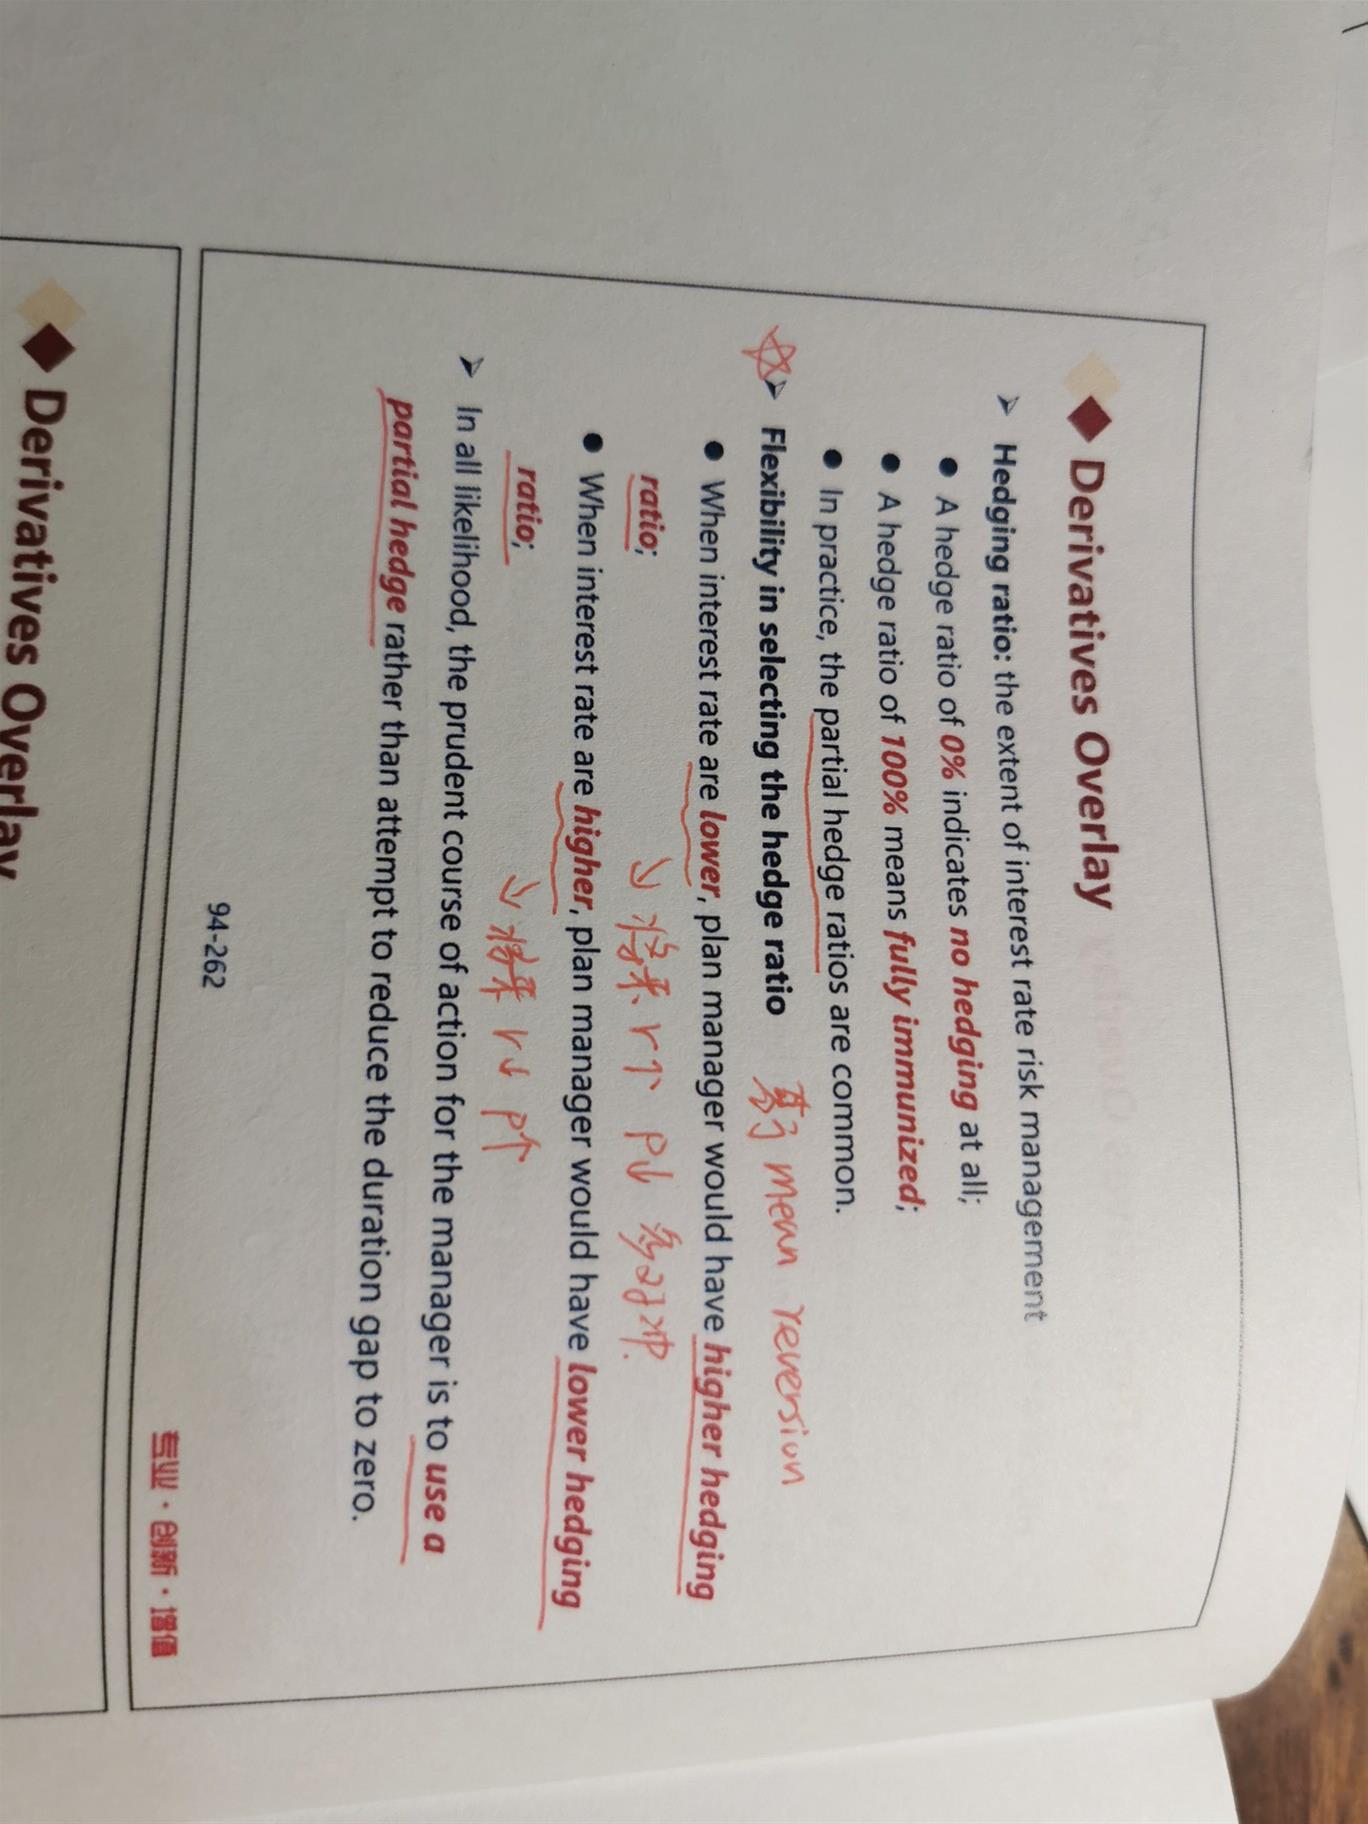 Derivatives Overlay
➢ Hedging ratio: the extent of interest rate risk management
● A hedge ratio of 0% indicates no hedging at all;
● A hedge ratio of 100% means fully immunized;
● In practice, the partial hedge ratios are common.
➢ Flexibility in selecting the hedge ratio 基于 mean reversion
● When interest rate are lower, plan manager would have higher hedging
ratio; ↘ 将来 r↑ p↓ 多对冲.
● When interest rate are higher, plan manager would have lower hedging
ratio; ↘ 将来 r↓ p↑
➢ In all likelihood, the prudent course of action for the manager is to use a
partial hedge rather than attempt to reduce the duration gap to zero.
94-262
专业·创新·增值
Derivatives Overlay